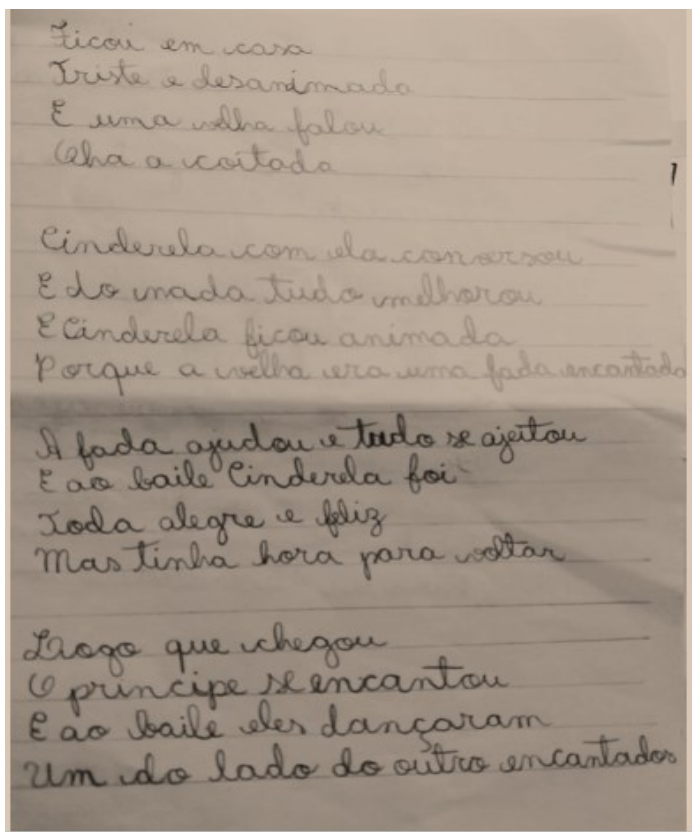 Ficou em casa
Triste e desanimada
E uma velha falou
Olha a coitada
Cinderela com ela conversou
E do nada tudo melhorou
E Cinderela ficou animada
Porque a velha era uma fada encantada
A fada ajudou e tudo se ajeitou
E ao baile Cinderela foi
Toda alegre e feliz
Mas tinha hora para voltar
Logo que chegou
O principe se encantou
E ao baile eles dançaram
Um do lado do outro encantados